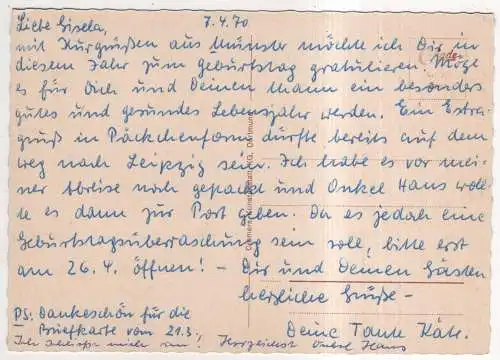 Liebe Gisela, 7.4.70
mit Kurgrüßen aus Münster möchte ich Dir in
diesem Jahr zum Geburtstag gratulieren. Möge
es für Dich und Deinen Mann ein besonders
gutes und gesundes Lebensjahr werden. Ein Extra-
gruß in Päckchenform dürfte bereits auf dem
Weg nach Leipzig sein. Ich habe es vor mei-
ner Abreise noch gepackt und Onkel Hans woll-
te es dann zur Post geben. Da es jedoch eine
Geburtstagsüberraschung sein soll, bitte erst
am 26.4. öffnen! – Dir und Deinen Gästen
herzliche Grüße –
Deine Tante Käte.
PS: Dankeschön für die
Briefkarte vom 21.3.!
Ich schließe mich an! Herzlichst Onkel Hans